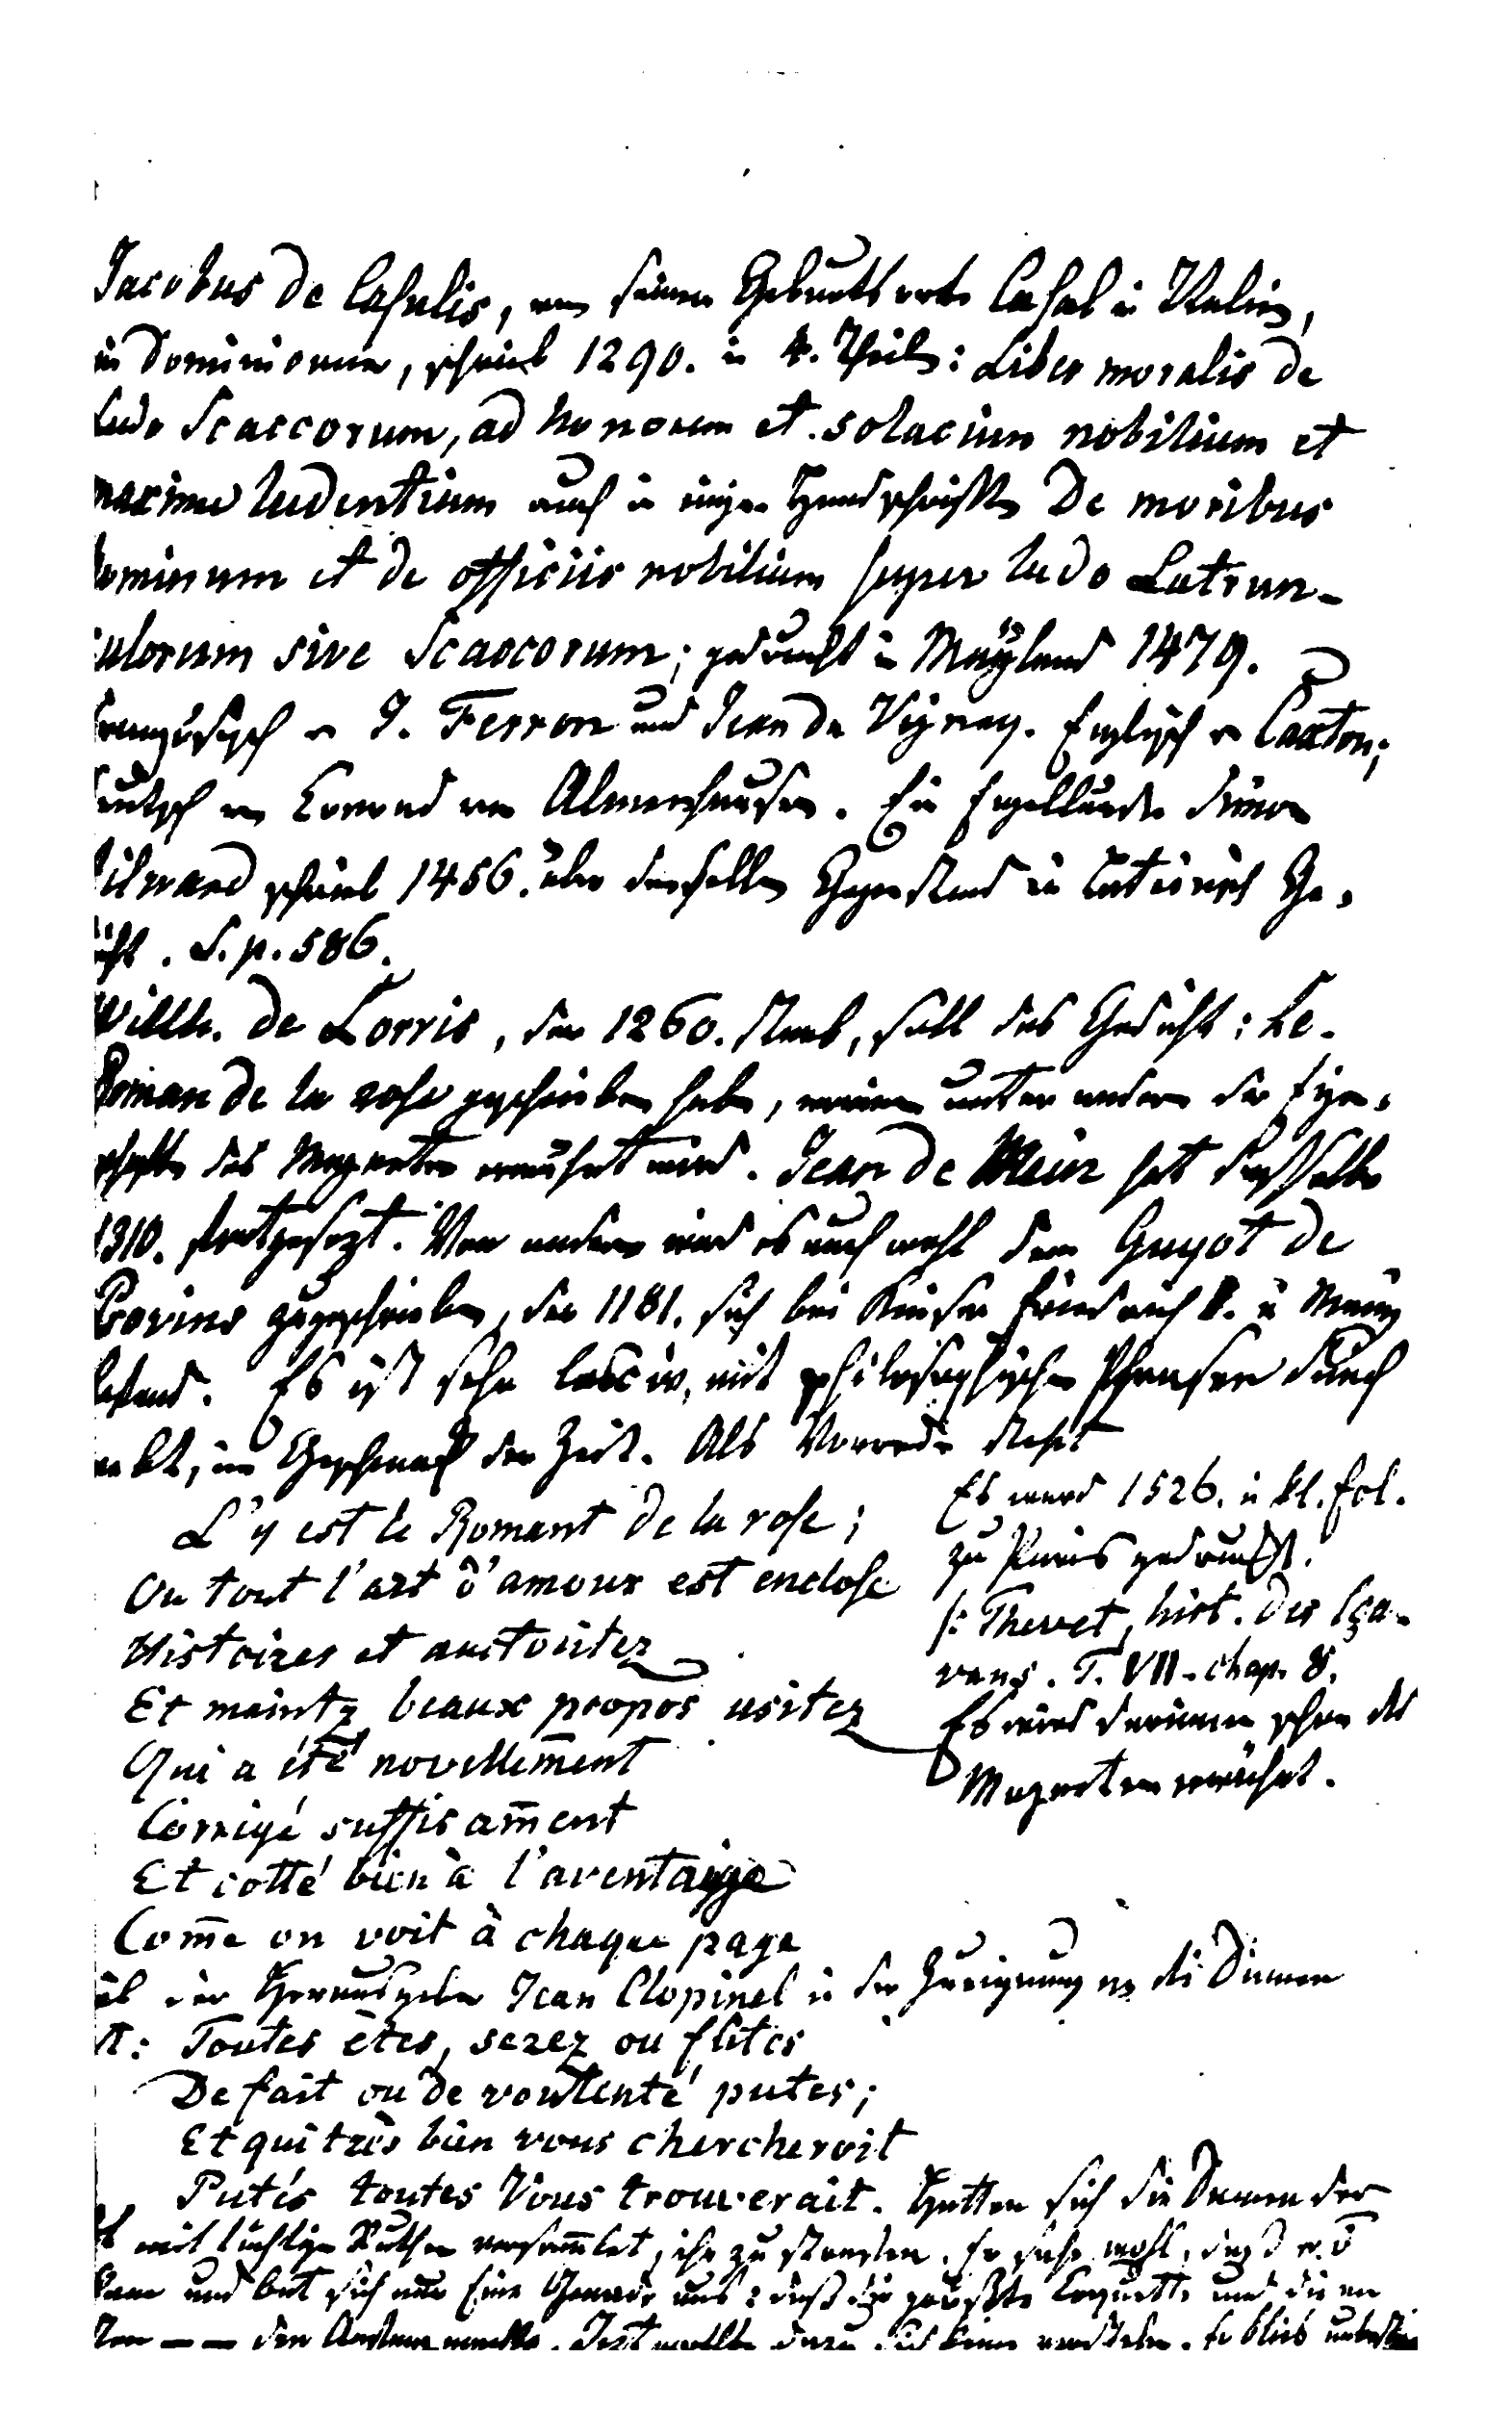 Jacobus de Casulis, von seinem Geburtsorte Casal in Italien,
ein Dominicaner, schrieb 1290. in 4. Theilen: Liber moralis de
ludo Scaccorum, ad honorem et solacium nobilium et
maxime ludentium auch in einigen Handschriften De moribus
hominum et de officiis nobilium super ludo Latrun-
culorum sive Scaccorum; gedruckt in Mayland 1479.
französisch v J. Ferron und Jean de Vignay. Englisch v Caxton;
deutsch von Konrad von Almenhausen. Ein Engelländer Simon
Ailward schrieb 1456. über denselben Gegenstand ein lateinisch Ge-
dicht. S. p. 586.
Willh. de Lorris, der 1260. starb, soll das Gedicht: Le
Roman de la rose geschrieben haben, worinn unter andern der Eigen-
schaften des Magneten erwähnt wird. Jean de Mein hat dasselbe
1310. fortgesezt. Von andern wird es auch wohl dem Guyot de
Provins zugeschrieben, der 1181. sich bei Kaiser Friedrich I. in Mainz
befand. Es ist sehr lasciv, mit philosophischen Phrasen durch
webt, im Geschmack der Zeit. Als Vorrede steht
L'y est le Romant de la rose;
Ou tout l'art d'amour est enclose
Histoires et auctoritez
Et maintz beaux propos usitez
Qui a été novellem̄ent
Corrigé suffisam̄ent
Et cotté bien à l'aventaige
Com̄e on voit à chaque page
Es ward 1526. in kl. fol.
zu Paris gedruckt.
s: Thevet, hist. des sça-
vans. T. VII. chap. 8.
Es wird darinnen schon des
Magneten erwähnt.
der Herausgeber Jean Clopinel in der Zueignung an die Damen
Toutes êtes, serez ou fûtes
De fait ou de voulenté putes;
Et qui très bien vous chercheroit
Putes toutes Vous trouverait. Hatten sich die Damen der
mit tüchtigen Ruthen versam̄let, ihn zu strafen. Er sahe wohl, daß er
kam und bat sich nur Eine Gnade aus: daß die größte Coquette und die
den Anfang machte. Jezt wollte dazu sich keine verstehen. Er blieb